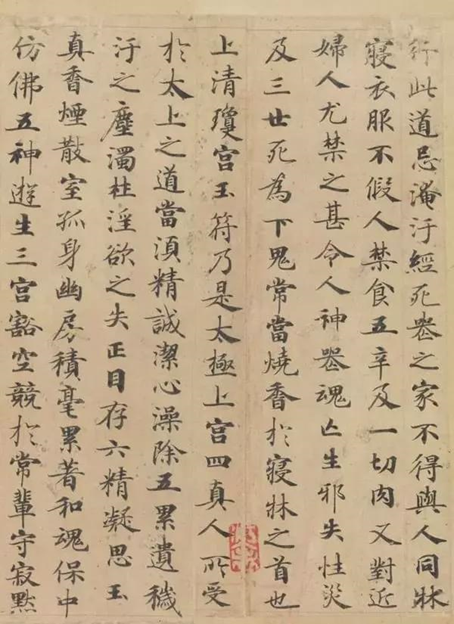 行此道忌淹汙經死喪之家不得與人同牀
寢衣服不假人禁食五辛及一切肉又對近
婦人尤禁之甚令人神喪魂亡生邪失性災
及三世死為下鬼常當燒香於寢牀之首也
上清瓊宮玉符乃是太極上宮四真人所受
於太上之道當須精誠潔心澡除五累遺穢
汙之塵濁杜淫欲之失正目存六精凝思玉
真香煙散室孤身幽房積毫累著和魂保中
仿佛五神遊生三宮豁空競於常輩守寂默